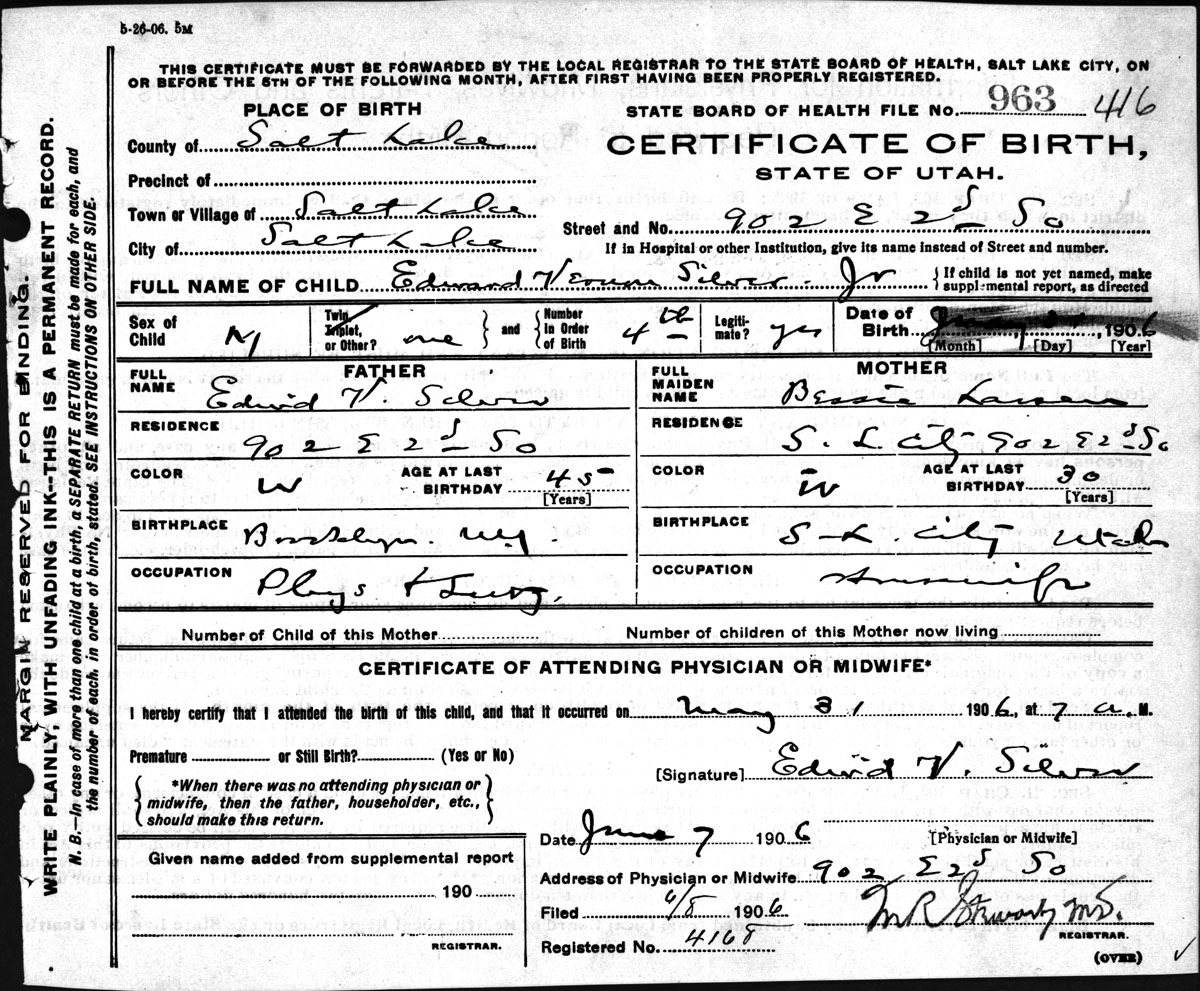 5-26-06. 5M
THIS CERTIFICATE MUST BE FORWARDED BY THE LOCAL REGISTRAR TO THE STATE BOARD OF HEALTH, SALT LAKE CITY, ON
OR BEFORE THE 5TH OF THE FOLLOWING MONTH, AFTER FIRST HAVING BEEN PROPERLY REGISTERED.
PLACE OF BIRTH
STATE BOARD OF HEALTH FILE No. 963 416
County of Salt Lake
CERTIFICATE OF BIRTH,
STATE OF UTAH.
Precinct of
Town or Village of Salt Lake
Street and No. 902 E 2d So
City of Salt Lake
If in Hospital or other Institution, give its name instead of Street and number.
FULL NAME OF CHILD Edward Vernon Silver Jr
If child is not yet named, make
supplemental report, as directed
Sex of Child M
Twin, Triplet, or Other? one
and
Number in Order of Birth 4th
Legitimate? yes
Date of Birth , 1906
[Month] [Day] [Year]
FATHER
FULL NAME Edwid V. Silver
RESIDENCE 902 E 2d So
COLOR W
AGE AT LAST BIRTHDAY 45
[Years]
BIRTHPLACE Brooklyn. N.Y.
OCCUPATION Phys & Surg.
MOTHER
FULL MAIDEN NAME Bessie Larsen
RESIDENCE S. L City 902 E 2d So
COLOR W
AGE AT LAST BIRTHDAY 30
[Years]
BIRTHPLACE S. L. City Utah
OCCUPATION Housewife
Number of Child of this Mother
Number of children of this Mother now living
CERTIFICATE OF ATTENDING PHYSICIAN OR MIDWIFE*
I hereby certify that I attended the birth of this child, and that it occurred on May 31 1906, at 7 a. M.
Premature or Still Birth? (Yes or No)
*When there was no attending physician or
midwife, then the father, householder, etc.,
should make this return.
[Signature] Edwid V. Silver
[Physician or Midwife]
Date June 7 1906
Given name added from supplemental report
190
REGISTRAR.
Address of Physician or Midwife 902 E 2d So
Filed 6/8 1906
M R Stewart M.D.
REGISTRAR.
Registered No. 4168
(OVER)
MARGIN RESERVED FOR BINDING.
WRITE PLAINLY, WITH UNFADING INK—THIS IS A PERMANENT RECORD.
N. B.—In case of more than one child at a birth, a SEPARATE RETURN must be made for each, and
the number of each, in order of birth, stated. SEE INSTRUCTIONS ON OTHER SIDE.